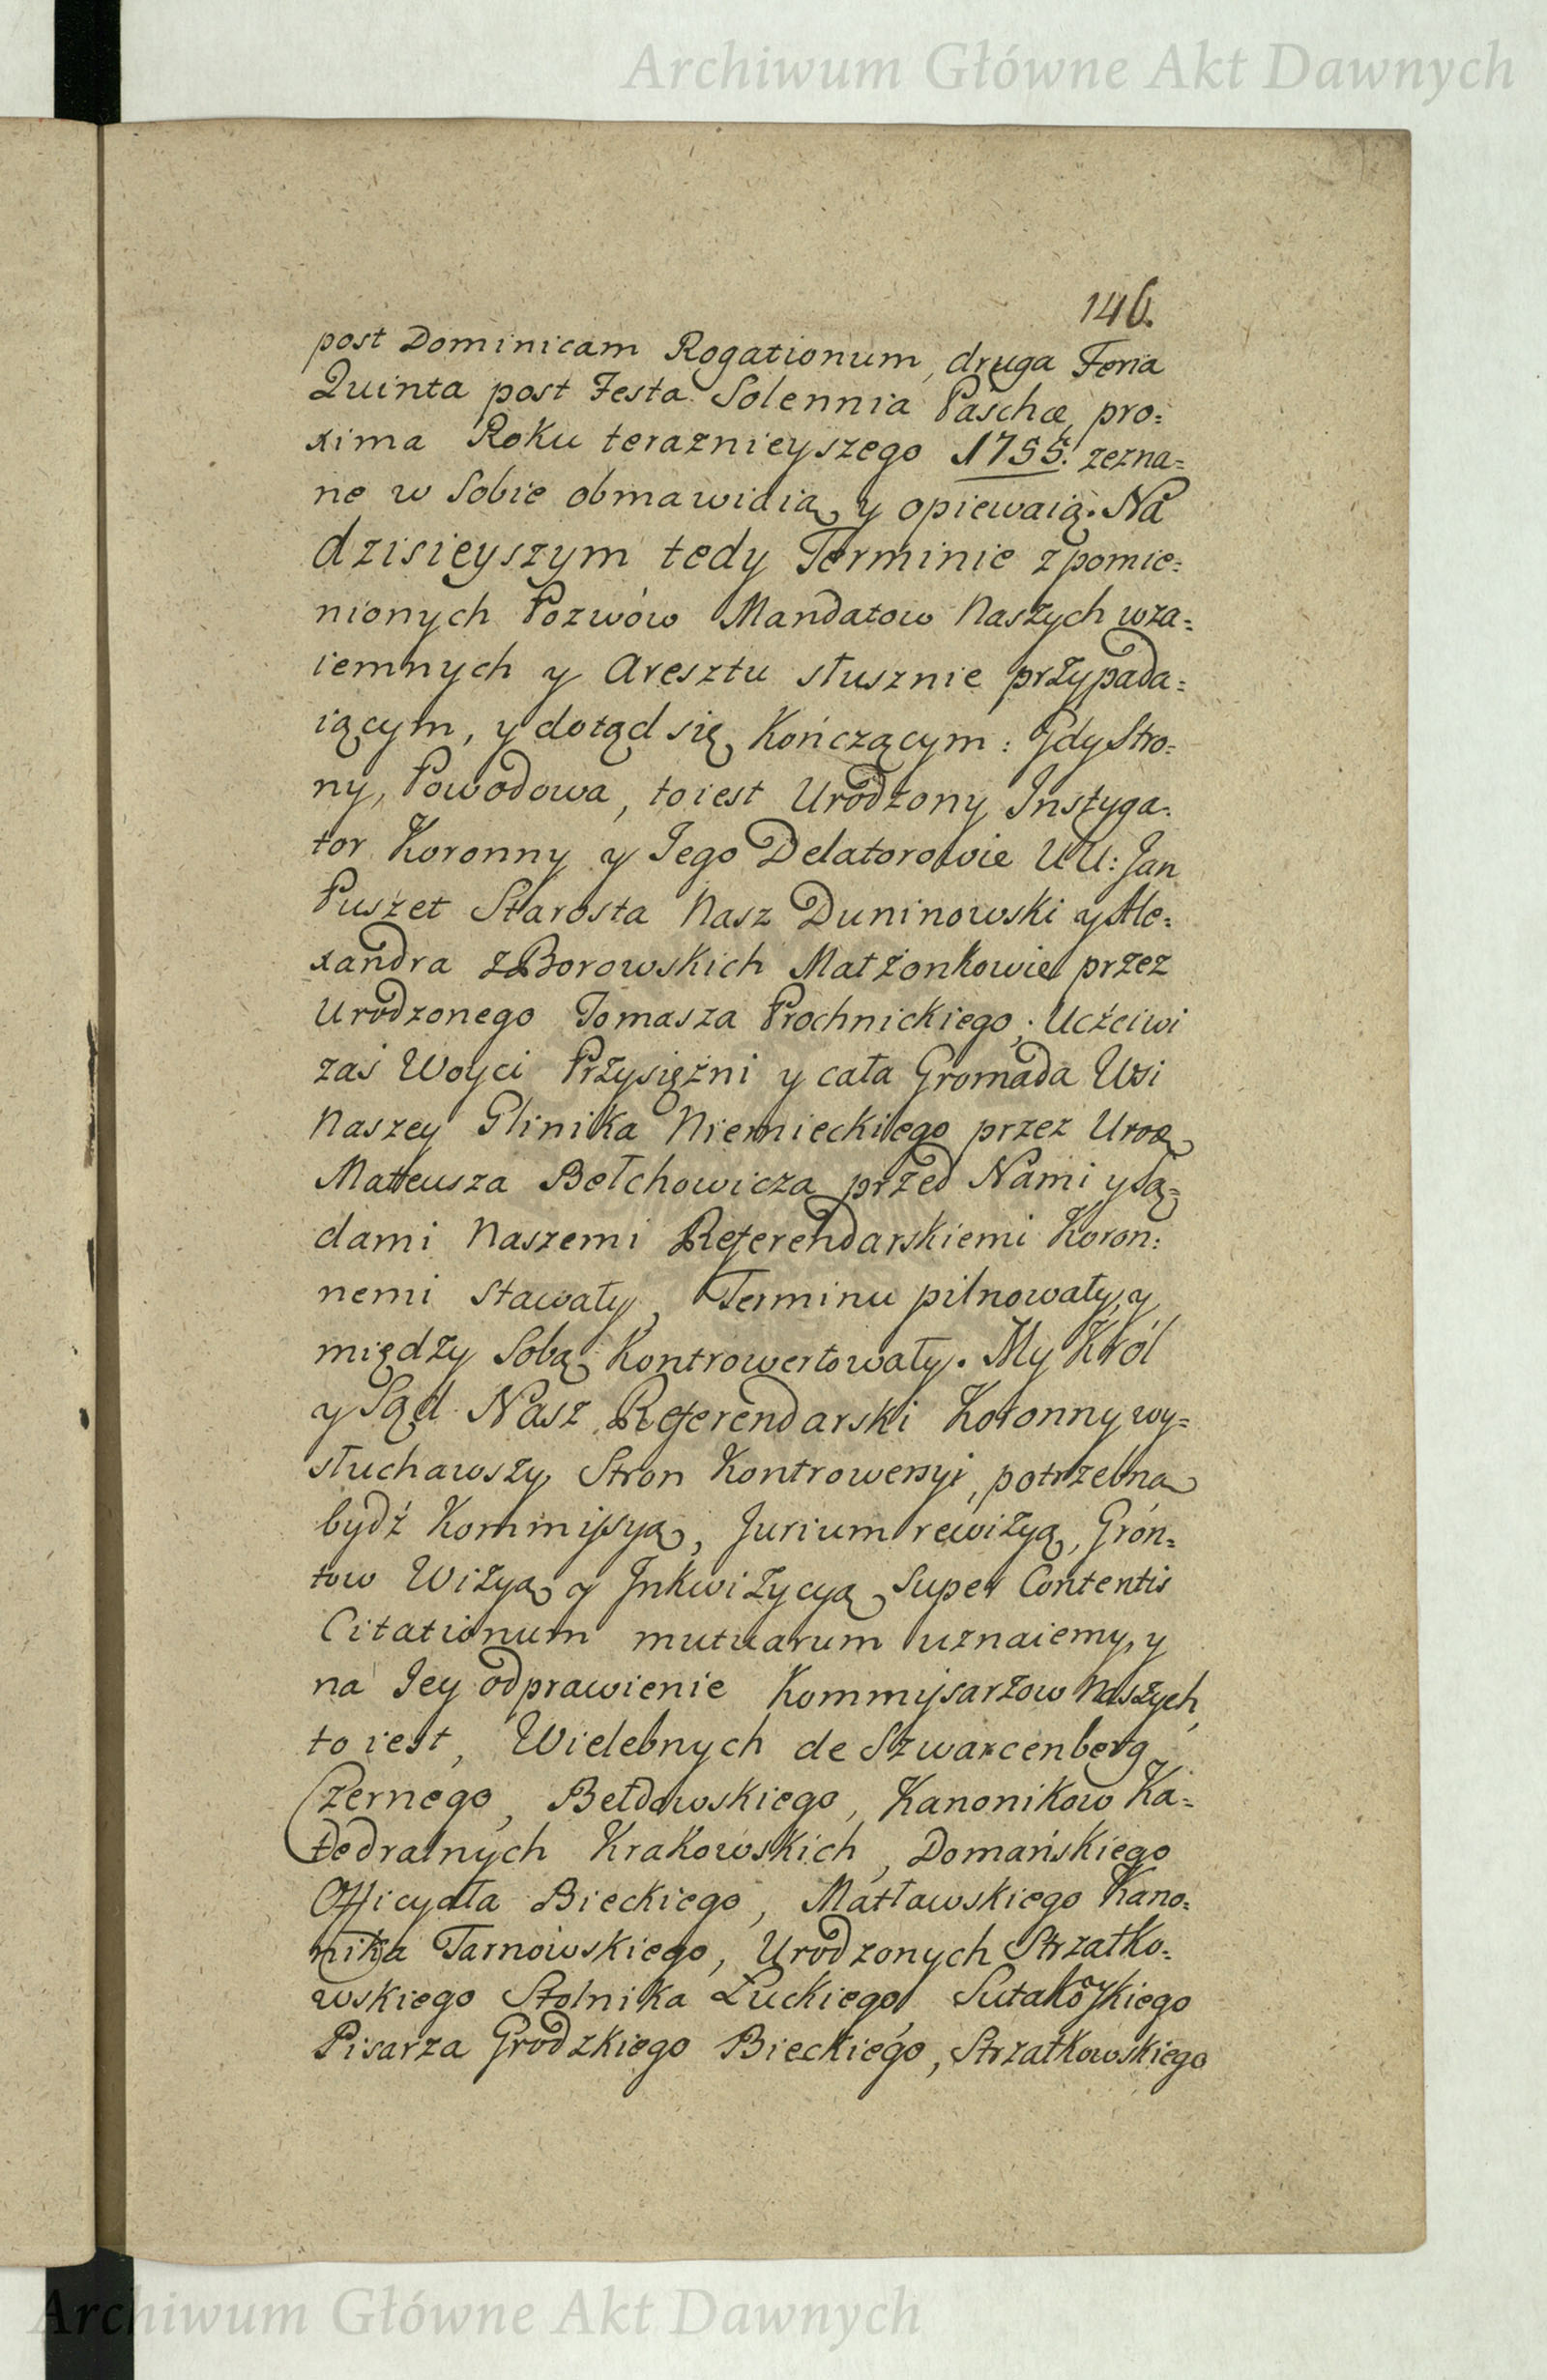 Archiwum Główne Akt Dawnych
146.
post Dominicam Rogationum, druga Feria
Quinta post Festa Solennia Paschæ pro=
xima Roku teraznieyszego 1755. zezna=
ne w Sobie obmawiaią y opiewaią. Na
dzisieyszym tedy Terminie z pomie=
nionych Pozwów Mandatow Naszych wza=
iemnych y Aresztu słusznie przypada=
iącym, y dotąd się Kończącym: Gdy Stro=
ny, Powodowa, to iest Urodzony Instyga=
tor Koronny y Jego Delatorowie UU: Jan
Puszet Starosta Nasz Duninowski y Ale=
xandra z Borowskich Małżonkowie przez
Urodzonego Tomasza Prochnickiego; Uczciwi
zaś Woyci Przysiężni y cała Gromada Wsi
Naszey Glinika Niemieckiego przez Urod
Matteusza Bełchowicza przed Nami y Są=
dami Naszemi Referendarskiemi Koron=
nemi stawały, Terminu pilnowały, y
między Sobą Kontrowertowały. My Król
y Sąd Nasz Referendarski Koronny wy=
słuchawszy Stron Kontrowersyi, potrzebna
bydź Kommissyą, Jurium rewizyą, Grón=
tow Wizyą y Inkwizycyą Super Contentis
Citationum mutuarum uznaiemy, y
na Jey odprawienie Kommissarzow Naszych,
to iest, Wielebnych de Szwarcenberg
Czernego, Bełdowskiego, Kanonikow Ka=
tedralnych Krakowskich, Domańskiego
Officyała Bieckiego, Matławskiego Kano=
nika Tarnowskiego, Urodzonych Strzałko=
wskiego Stolnika Łuckiego, Sutakowskiego
Pisarza Grodzkiego Bieckiego, Strzałkowskiego
Archiwum Główne Akt Dawnych